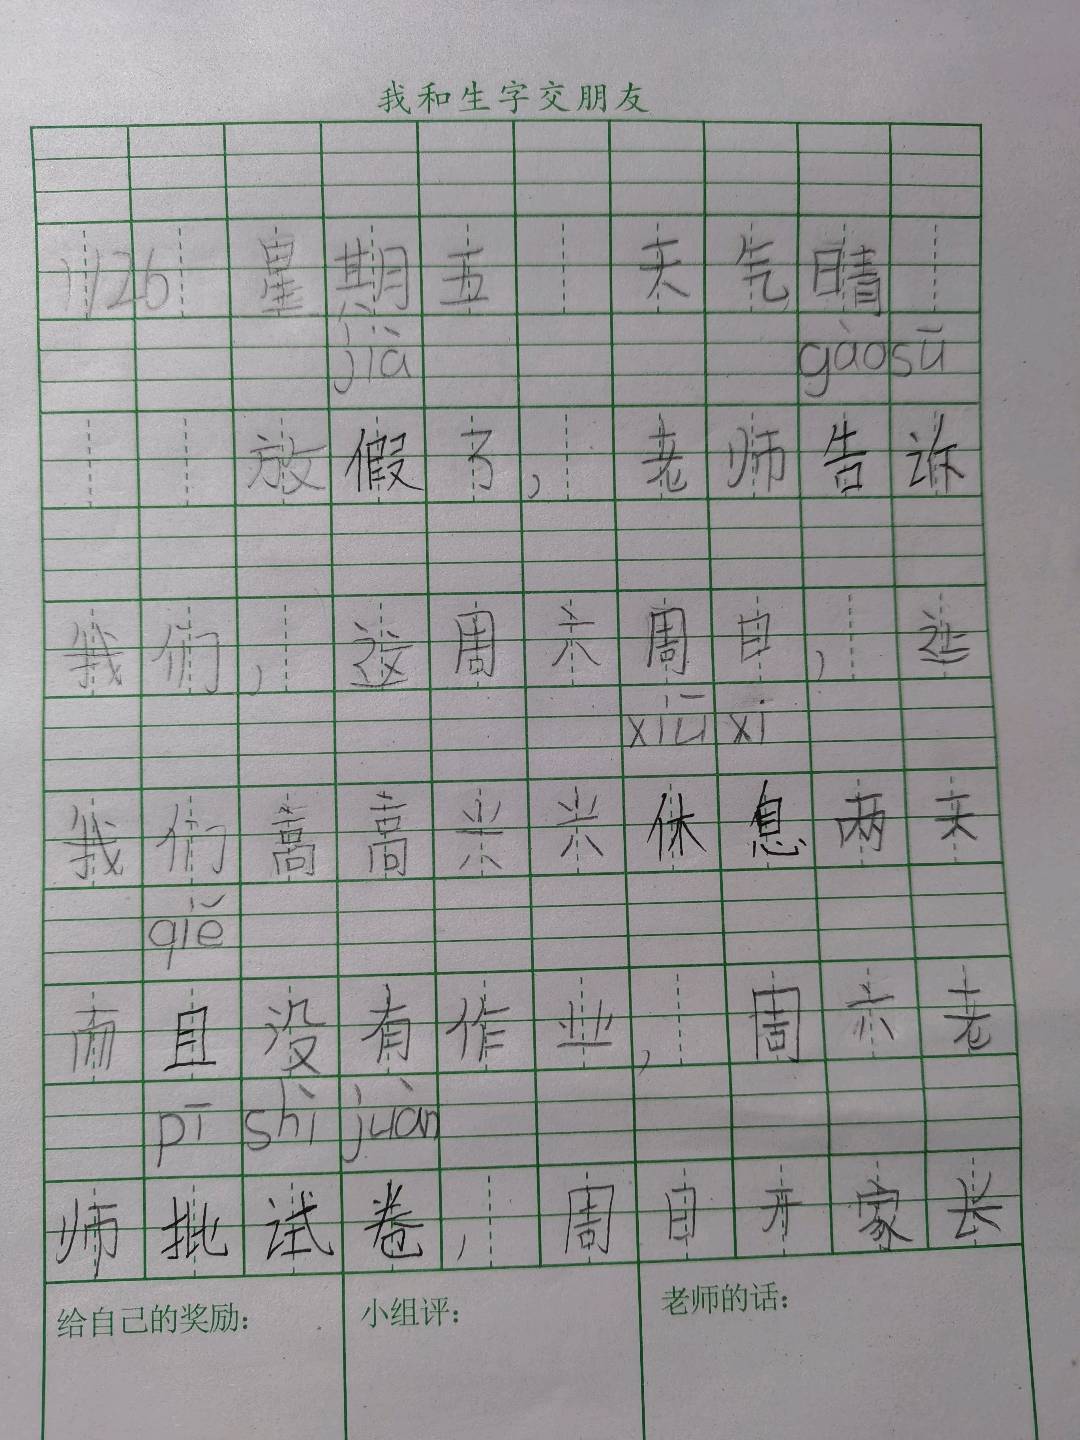 我和生字交朋友
11/26 星期五 天气晴
jià gàosū
放假了，老师告诉
我们，这周六周日，让
xiūxi
我们高高兴兴休息两天
qiě
而且没有作业，周六老
pī shì juàn
师批试卷，周日开家长
给自己的奖励： 小组评： 老师的话：